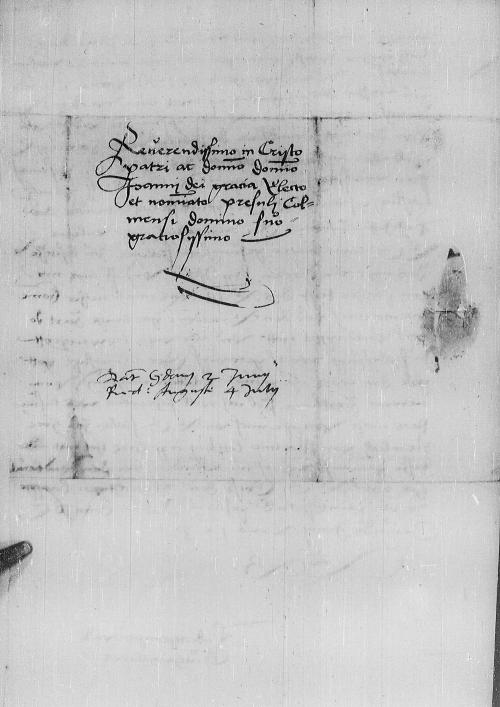 Reverendissimo in Cristo
patri ac domino domino
Joanni dei gracia Electo
et nominato presuli Col-
mensi domino suo
gratiosissimo
Dat Gdani 2 Junii
Rect: Auguste 4 July